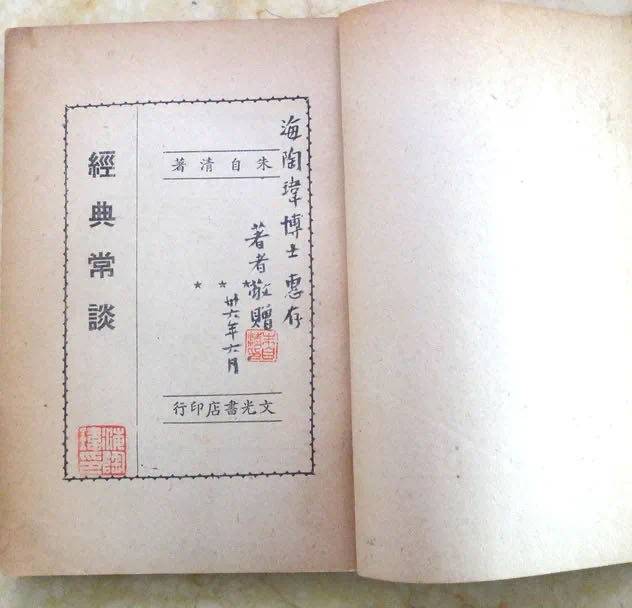 海陶瑋博士惠存
著者敬贈
卅六年六月
朱自清著
* * *
文光書店印行
經典常談
海陶瑋印